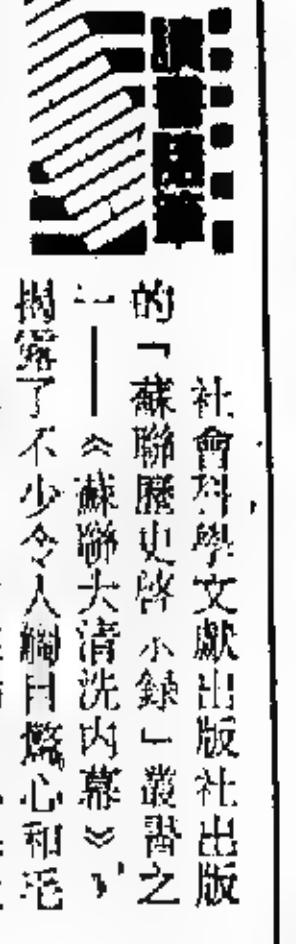 讀書隨筆
社會科學文獻出版社出版
的「蘇聯歷史啓示錄」叢書之
一——《蘇聯大清洗內幕》，
揭露了不少令人觸目驚心和毛